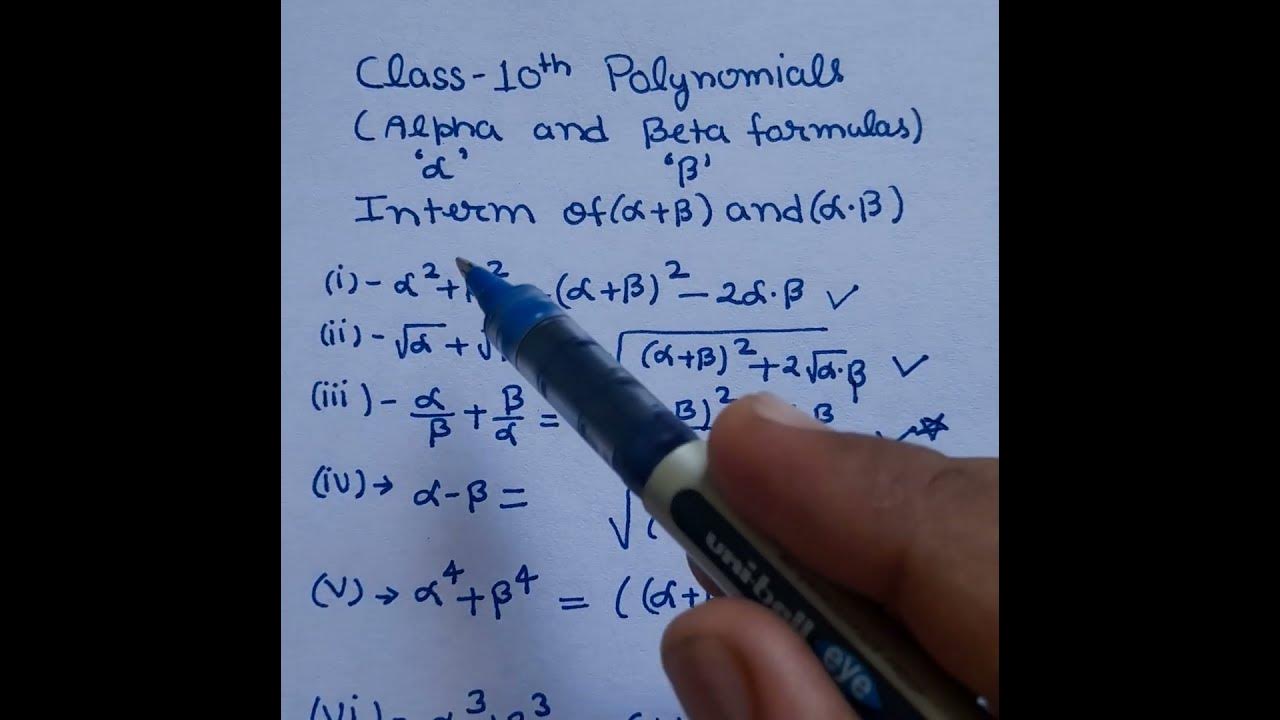 Class-10th Polynomials
(Alpha and Beta formulas)
'α' 'β'
Interm of (α+β) and (α·β)
(i) - α²+ ² (α+β)² - 2α·β ✓
(ii) - √α + √ √(α+β)² + 2√α·β ✓
(iii) - α/β + β/α = β)² β ✓☆
(iv) → α-β = √(
(v) → α⁴+β⁴ = ((α+
(vi) - ³ ³
uni-ball eye